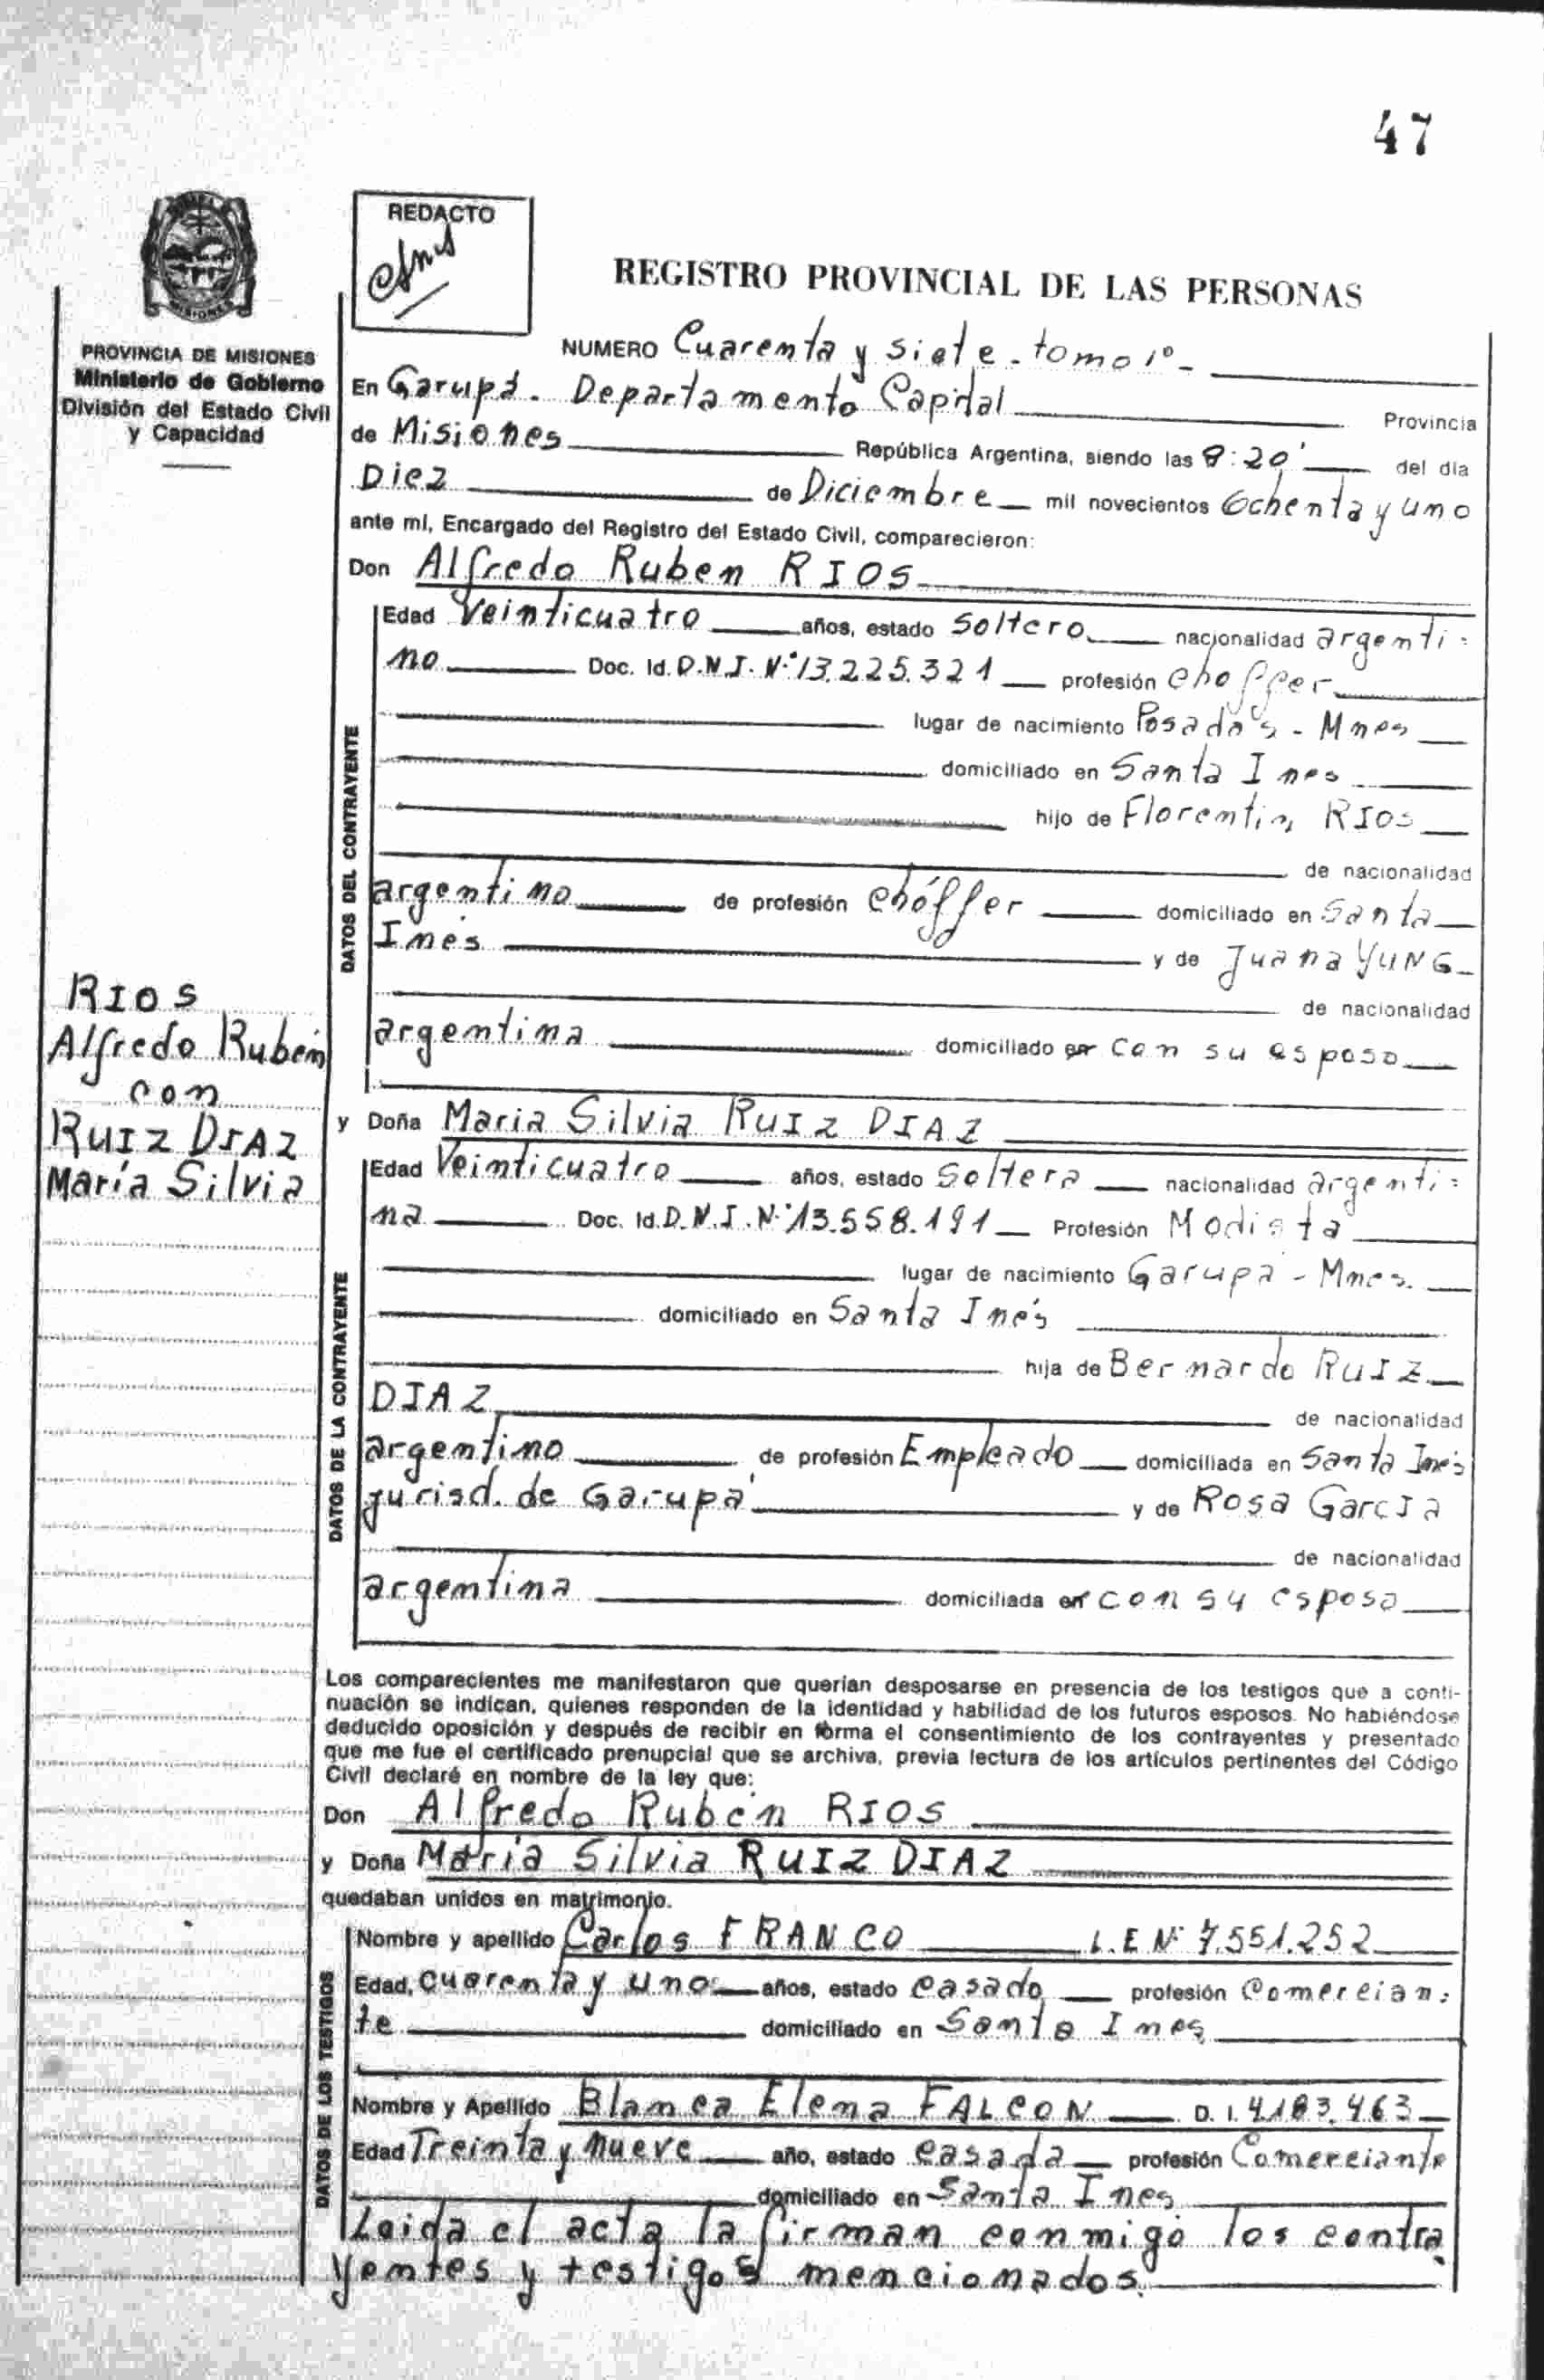 47
REDACTO
REGISTRO PROVINCIAL DE LAS PERSONAS
PROVINCIA DE MISIONES
Ministerio de Gobierno
División del Estado Civil
y Capacidad
NUMERO Cuarenta y siete - tomo 1º -
En Garupá. Departamento Capital Provincia
de Misiones República Argentina, siendo las 8:20' del día
Diez de Diciembre mil novecientos Ochenta y uno
ante mí, Encargado del Registro del Estado Civil, comparecieron:
Don Alfredo Ruben RIOS
DATOS DEL CONTRAYENTE
Edad Veinticuatro años, estado Soltero nacionalidad argenti=
no Doc. Id. D.N.I. Nº 13.225.321 profesión choffer
lugar de nacimiento Posadas - Mnes
domiciliado en Santa Ines
hijo de Florentin RIOS
de nacionalidad
argentino de profesión chóffer domiciliado en Santa
Inés y de Juana YUNG
de nacionalidad
argentina domiciliado en con su esposo
RIOS
Alfredo Rubén
con
RUIZ DIAZ
María Silvia
y Doña Maria Silvia RUIZ DIAZ
DATOS DE LA CONTRAYENTE
Edad Veinticuatro años, estado Soltera nacionalidad argenti=
na Doc. Id. D.N.I. Nº 13.558.191 Profesión Modista
lugar de nacimiento Garupa - Mnes.
domiciliado en Santa Inés
hija de Bernardo RUIZ
DIAZ de nacionalidad
argentino de profesión Empleado domiciliada en Santa Inés
jurisd. de Garupá y de Rosa GarcIa
de nacionalidad
argentina domiciliada en con su esposo
Los comparecientes me manifestaron que querían desposarse en presencia de los testigos que a conti-
nuación se indican, quienes responden de la identidad y habilidad de los futuros esposos. No habiéndose
deducido oposición y después de recibir en forma el consentimiento de los contrayentes y presentado
que me fue el certificado prenupcial que se archiva, previa lectura de los artículos pertinentes del Código
Civil declaré en nombre de la ley que:
Don Alfredo Rubén RIOS
y Doña María Silvia RUIZ DIAZ
quedaban unidos en matrimonio.
DATOS DE LOS TESTIGOS
Nombre y apellido Carlos FRANCO L.E Nº 7.551.252
Edad, cuarenta y uno años, estado casado profesión Comercian=
te domiciliado en Santa Ines
Nombre y Apellido Blanca Elena FALCON D. I. 4.183.463
Edad Treinta y nueve año, estado casada profesión Comerciante
domiciliado en Santa Ines
Leida el acta la firman conmigo los contra
yentes y testigos mencionados.